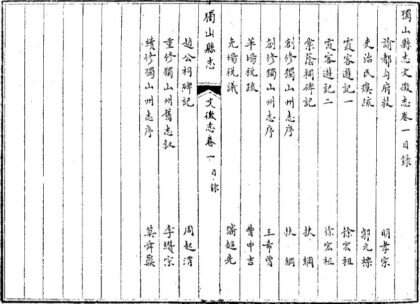 獨山縣志文徵志卷一目錄
諭都勻府敕 明孝宗
吏治民瘼疏 郭元祿
霞客遊記一 徐宏祖
霞客遊記二 徐宏祖
棠蔭祠碑記 扶綱
創修獨山州志序 扶綱
創修獨山州志序 王希曾
革場稅疏 曹申吉
免場稅議 潘超先
獨山縣志
文徵志卷一 目錄
趙公祠碑記 周起渭
重修獨山州舊志叙 李纘宗
續修獨山州志序 莫舜鼐